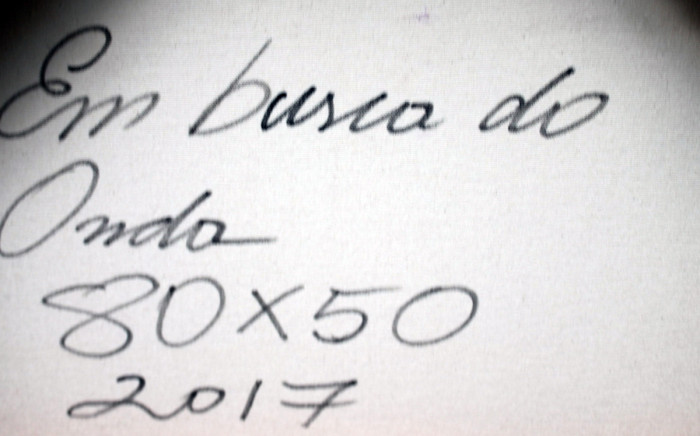 Em busca do
Onda
80x50
2017